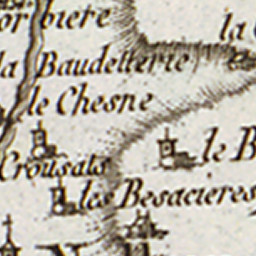 la Baudetterie
le Chesne
le B
Crousats
les Besacieres